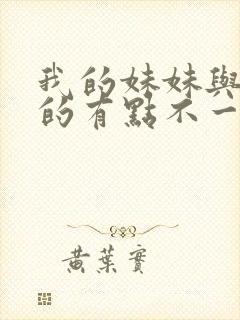 我的妹妹與
的有點不一
黃葉實